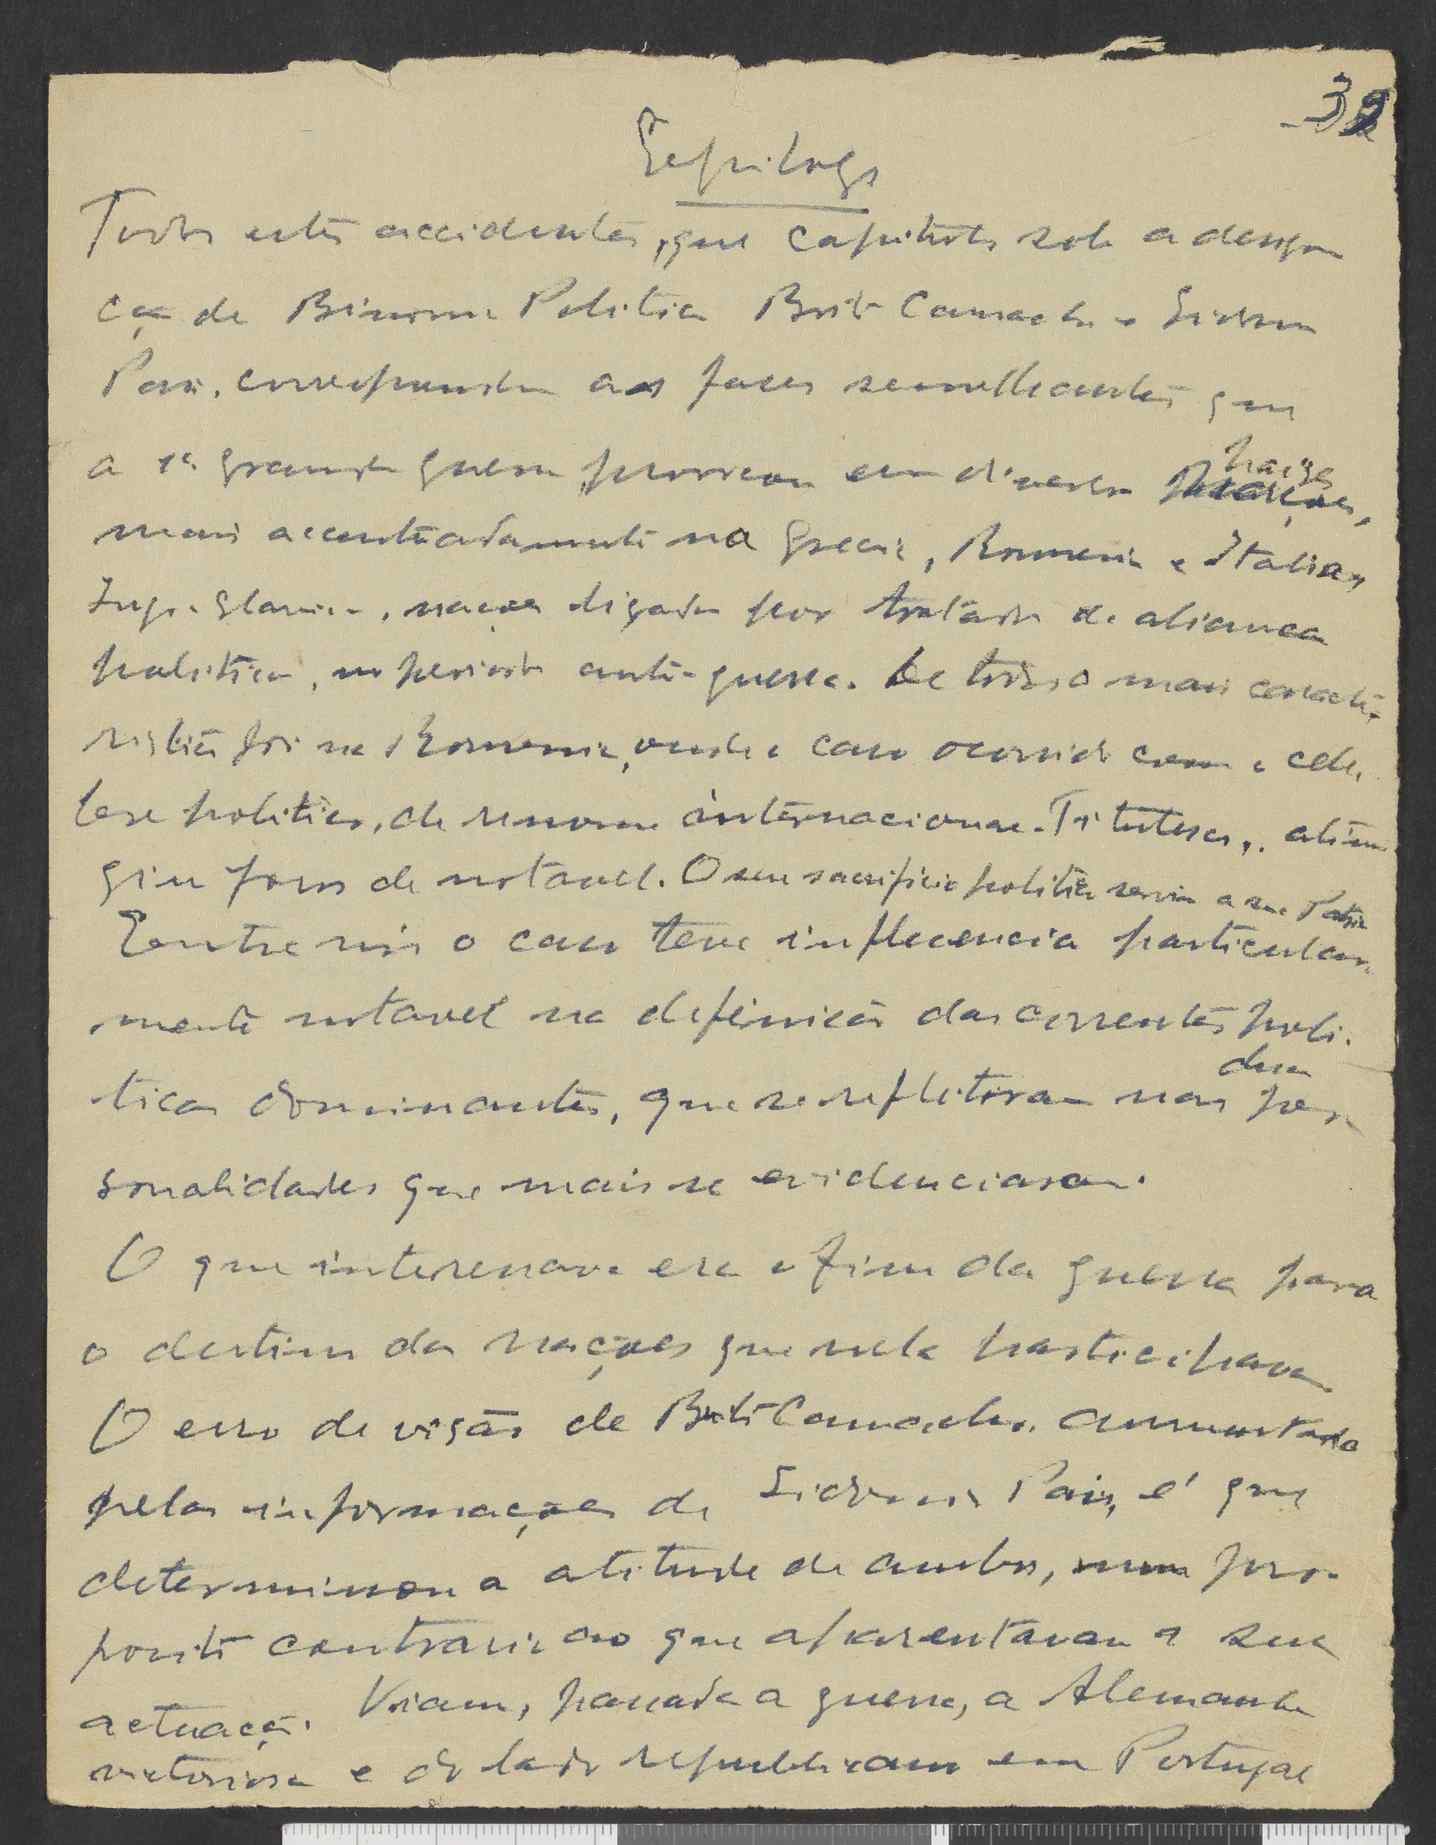 39
Epilogo
Todos estes accidentes, que capitulo sob a designa
ção de Binomio Politico Brito Camacho e Sidonio
Pais, correspondem as faces semelhantes que
a 1ª grande guerra provocou em diversos paizes,
mais accentuadamente na Grecia, Romenia e Italia,
nações ligadas por tratados de aliança
politica, no periodo ante-guerra. De todos o mais caracte-
ristico foi na Romenia, onde o caso ocorrido com o cele-
bre politico, de renome internacional. Titulescu, atin
giu foros de notavel. O seu sacrificio politico serviu a sua Patria
Entre nós o caso teve influencia particular-
mente notavel na definição das correntes poli-
ticas dominantes, que se refletiram nas duas per-
sonalidades que mais se evidenciaram.
O que interessava era o fim da guerra para
o destino das nações que nela participavam
O erro de visão de Brito Camacho, aumentado
pelas informações de Sidonio Pais, é que
determinou a atitude de ambos, num pro-
posito contrario ao que aparentavam a sua
actuação. Viam, passada a guerra, a Alemanha
victoriosa e do lado republicano em Portugal